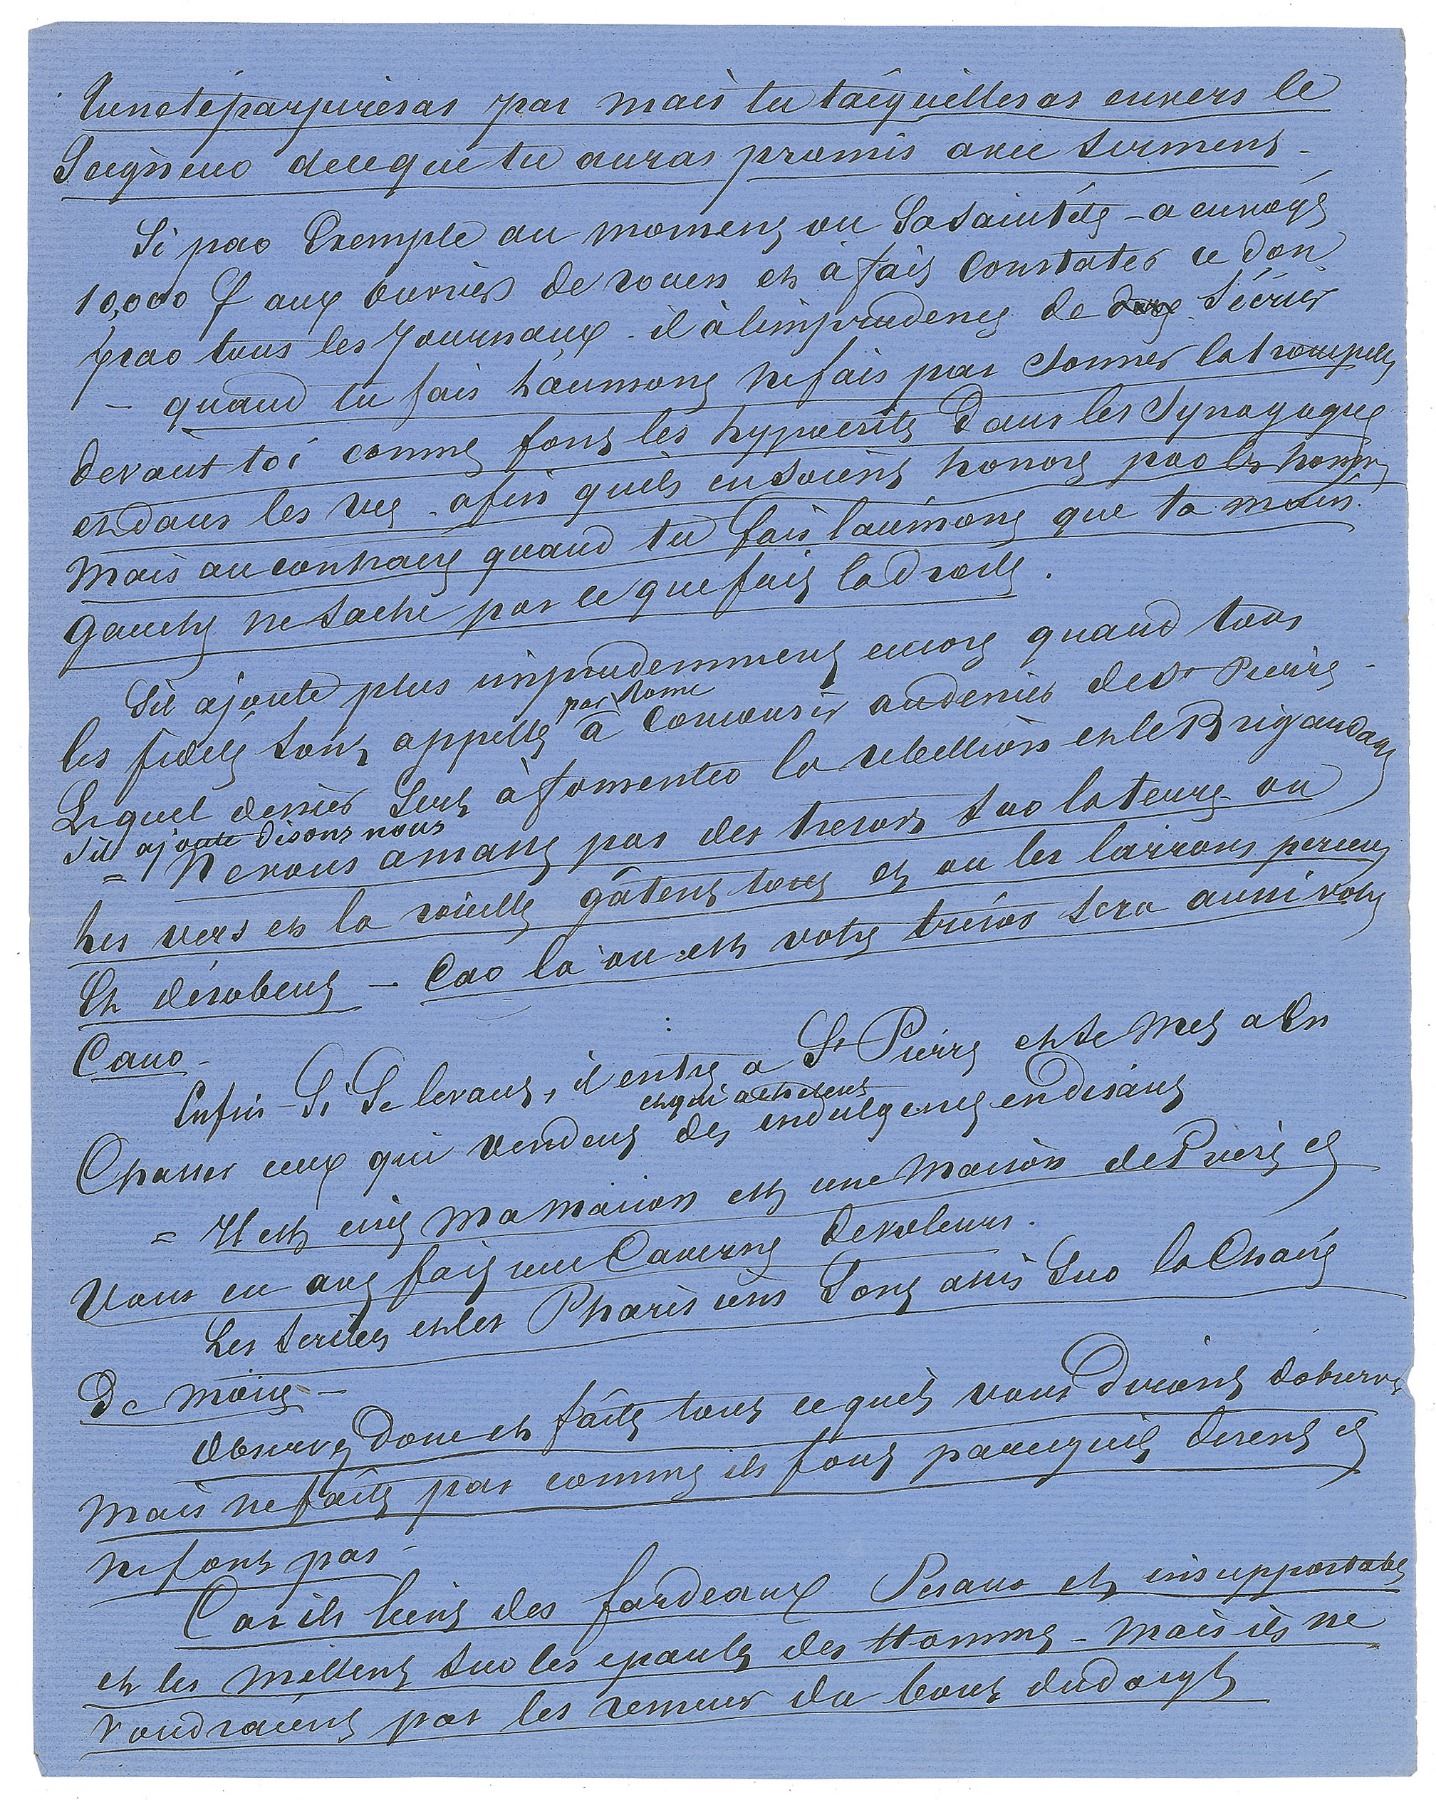 tu ne te parjureras pas mais tu t'acquitteras envers le
Seigneur de ce que tu auras promis avec serment -
Si par Exemple au moment ou Sa Sainteté - a envoyé
10,000 f aux ouvriers de rouen et à fait constater ce don
par tous les Journaux - il à l'imprudence de S'écrier
- quand tu fais l'aumone ne fais pas sonner la trompette
devant toi comme font les hypocrites dans les Synagogues
et dans les rues - afin quils en soient honorés par les hommes
mais au contraire quand tu fais l'aumone que ta main
gauche ne sache pas ce que fait la droite.
Sil ajoute plus imprudemment encore quand tous
par Rome
les fideles sont appellés à concourir au denier de St Pierre -
Lequel denier sert à fomenter la rebellion et le Brigandage
sil ajoute disons nous
= Ne vous amassez pas des tresors sur la terre - ou
Les vers et la rouille gâtent tout et ou les larrons percent
Et dérobent - Car la ou est votre trésor sera aussi votre
Cœur -
Enfin - Si Se levant, il entre a St Pierre et se met a En
et qui achetent
Chasser ceux qui vendent des indulgences en disant
= Il est ecrit ma maison est une maison de Prière et
Vous en avez fait une Caverne de voleurs.
Les scribes et les Pharisiens sont assis sur la Chaire
De moïse -
Observez donc et faites tout ce quils vous diront d'observer
mais ne faites pas comme ils font parcequils disent et
ne font pas -
Car ils lient des fardeaux Pesans et insupportables
et les mettent sur les epaules des Hommes - mais ils ne
voudraient pas les remuer du bout du doigt